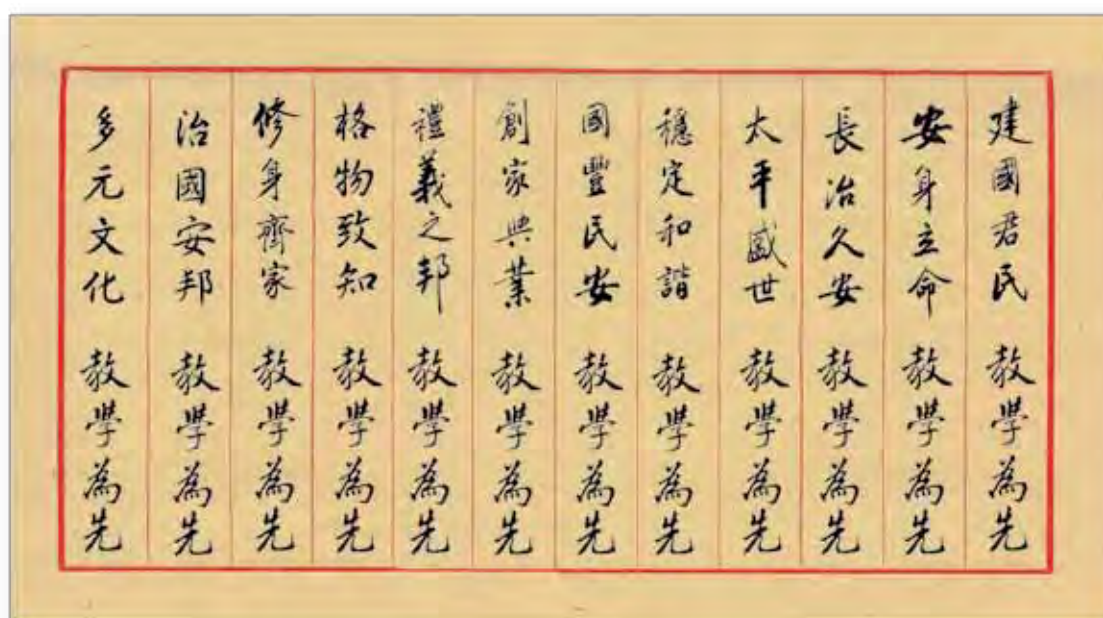 建國君民 教學為先
安身立命 教學為先
長治久安 教學為先
太平盛世 教學為先
穩定和諧 教學為先
國豐民安 教學為先
創家興業 教學為先
禮義之邦 教學為先
格物致知 教學為先
修身齊家 教學為先
治國安邦 教學為先
多元文化 教學為先